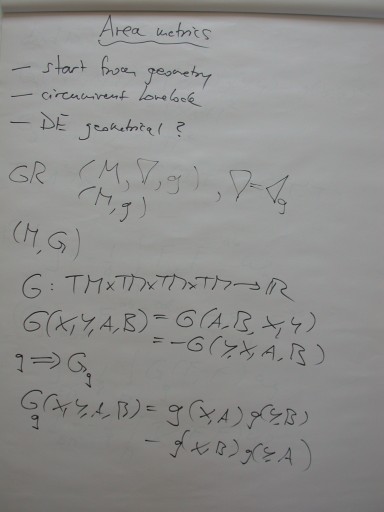 Area metrics
— start from geometry
— circumvent Lovelock
— DE geometrical ?
GR (M, ∇, g) , ∇=∇g
(M, g)
(M, G)
G : TM×TM×TM×TM→ℝ
G(X,Y,A,B) = G(A,B,X,Y)
= -G(Y,X,A,B)
g ⟹ Gg
Gg(X,Y,A,B) = g(X,A) g(Y,B)
- g(X,B) g(Y,A)